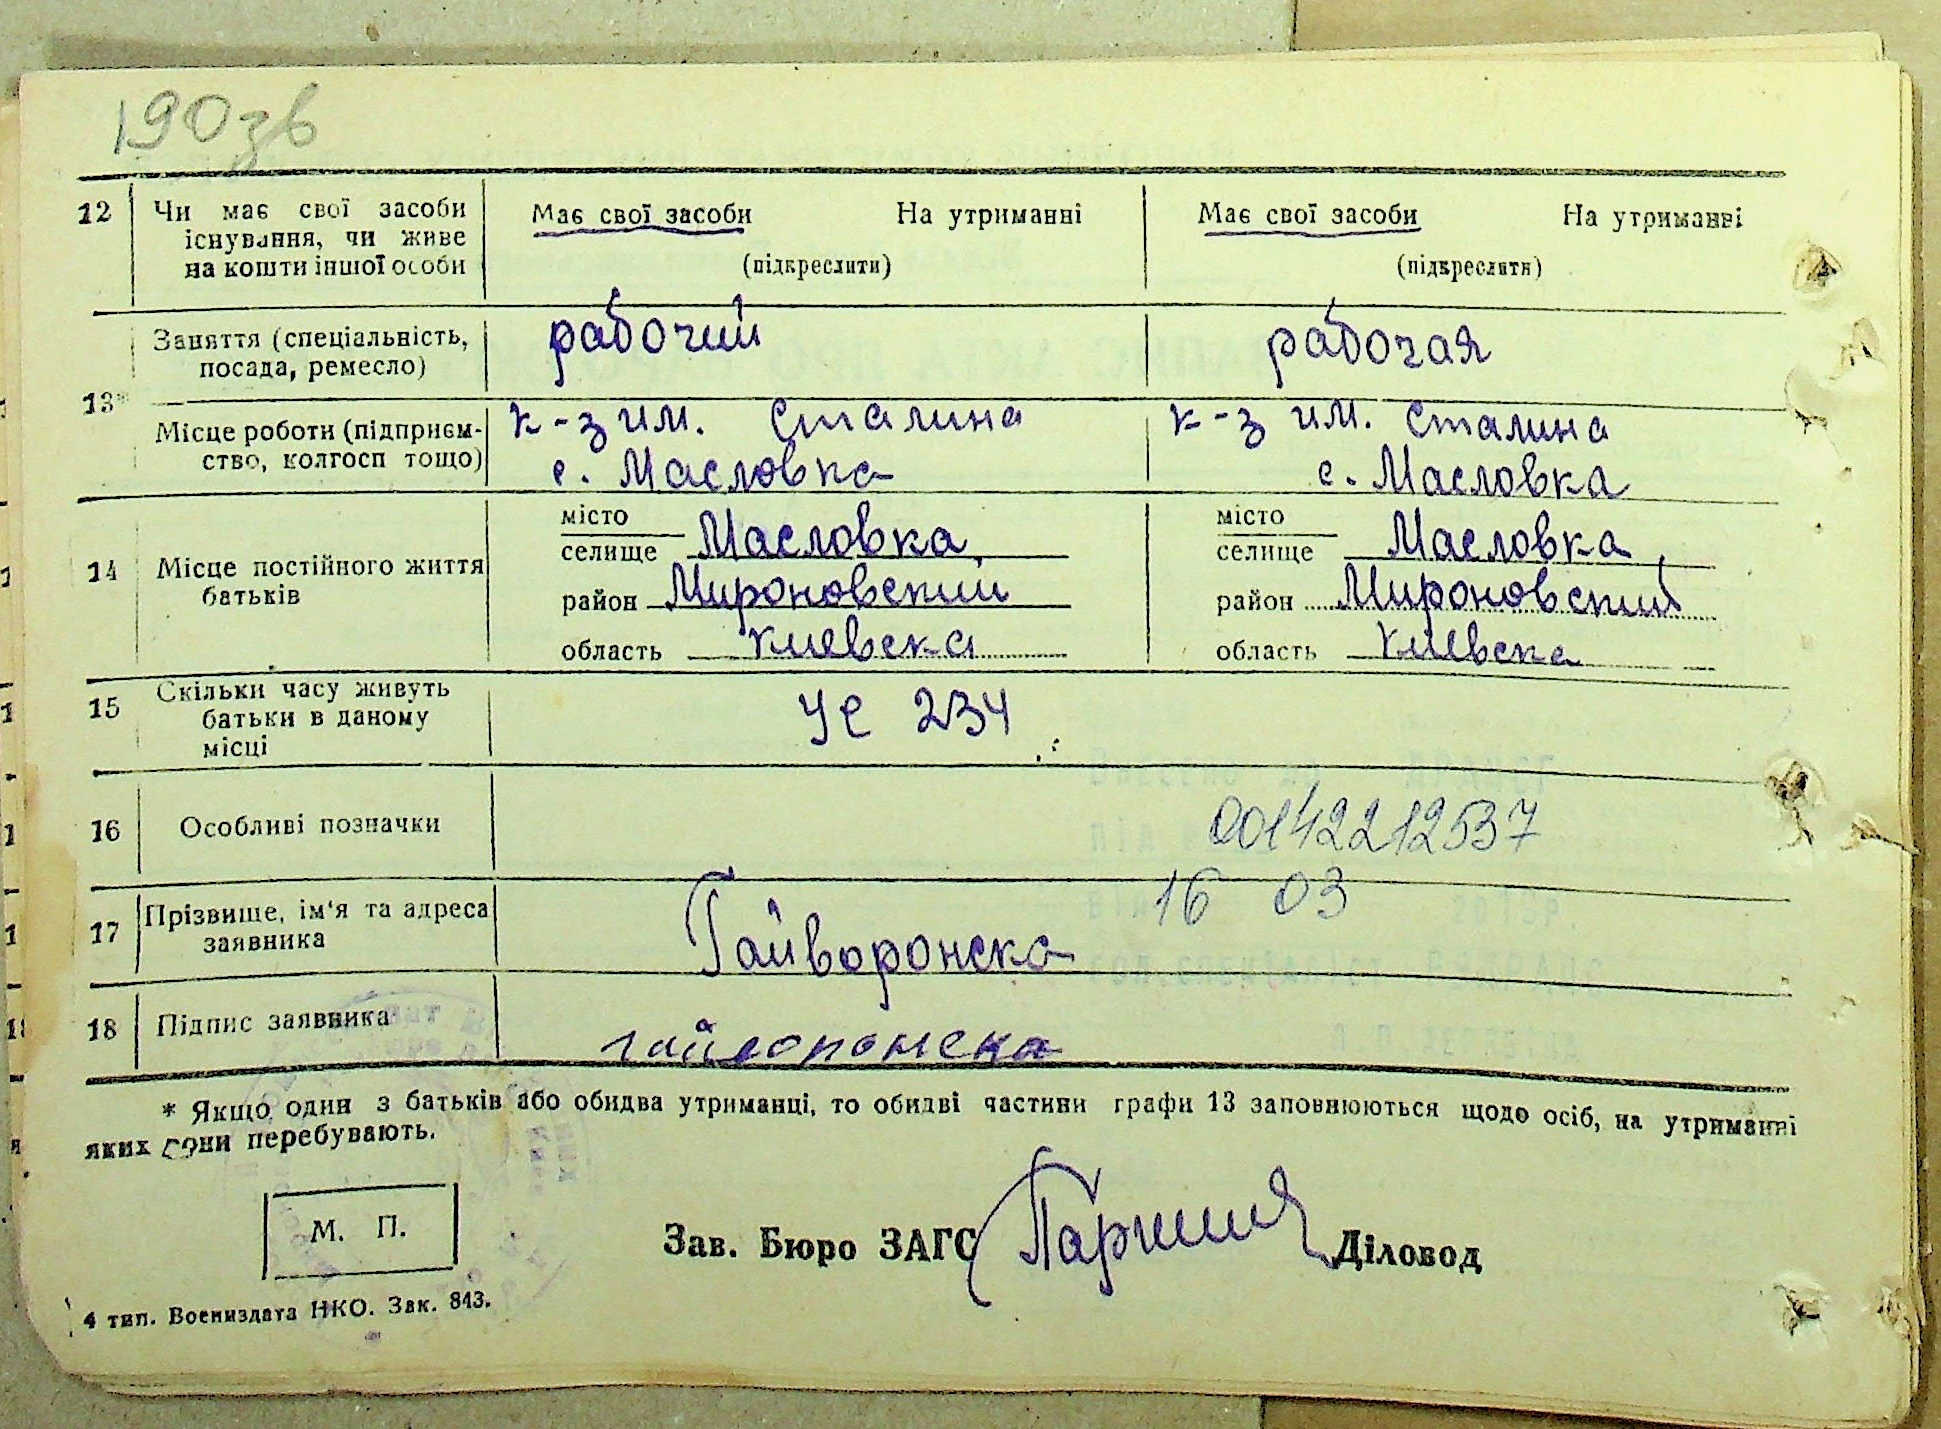 190зв
12 Чи має свої засоби існування, чи живе на кошти іншої особи
Має свої засоби На утриманні
(підкреслити)
Має свої засоби На утриманні
(підкреслити)
13*
Заняття (спеціальність, посада, ремесло)
рабочий
рабочая
Місце роботи (підприєм-
ство, колгосп тощо)
к-з им. Сталина
с. Масловка
к-з им. Сталина
с. Масловка
14 Місце постійного життя батьків
місто
селище Масловка
район Мироновский
область Киевска
місто
селище Масловка
район Мироновский
область Киевска
15 Скільки часу живуть батьки в даному місці
УС 234
16 Особливі позначки
00142212537
16 03
17 Прізвище, ім'я та адреса заявника
Гайворонска
18 Підпис заявника
гайворонска
* Якщо один з батьків або обидва утриманці, то обидві частини графи 13 заповнюються щодо осіб, на утриманні
яких вони перебувають.
М. П.
Зав. Бюро ЗАГС Діловод
4 тип. Воениздата НКО. Зак. 843.